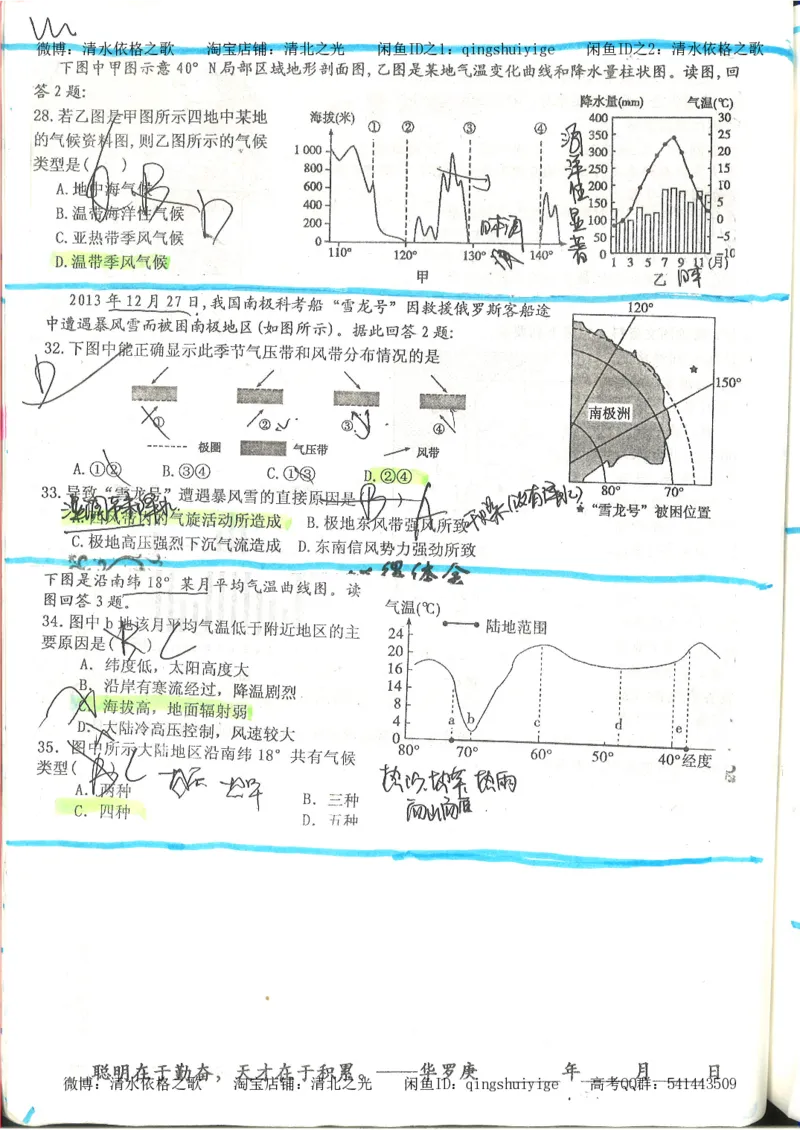 微博：清水依格之歌 淘宝店铺：清北之光 闲鱼ID之1：qingshuiyige 闲鱼ID之2：清水依格之歌
下图中甲图示意40°N局部区域地形剖面图,乙图是某地气温变化曲线和降水量柱状图。读图,回
答2题:
28.若乙图是甲图所示四地中某地
的气候资料图,则乙图所示的气候
类型是( )
A.地中海气候
B.温带海洋性气候
C.亚热带季风气候
D.温带季风气候
海拔(米)
① ② ③ ④
1 000
800
600
400
200
0
110° 120° 130° 140°
甲
日本海
海洋性显著
降水量(mm) 气温(℃)
400 30
350 25
300 20
250 15
200 10
150 5
100 0
50 -5
0 -10
1 3 5 7 9 11 (月)
乙
2013年12月27日,我国南极科考船“雪龙号”因救援俄罗斯客船途
中遭遇暴风雪而被困南极地区(如图所示)。据此回答2题:
32.下图中能正确显示此季节气压带和风带分布情况的是
D
① ② ③ ④
极圈 气压带 风带
A.①② B.③④ C.①③ D.②④
120°
150°
南极洲
80° 70°
★“雪龙号”被困位置
33.导致“雪龙号”遭遇暴风雪的直接原因是( )
B A
A.西风带内的气旋活动所造成 B.极地东风带强风所致
C.极地高压强烈下沉气流造成 D.东南信风势力强劲所致
下图是沿南纬18°某月平均气温曲线图。读
图回答3题。
34.图中b地该月平均气温低于附近地区的主
要原因是( )
A. 纬度低，太阳高度大
B. 沿岸有寒流经过，降温剧烈
C. 海拔高，地面辐射弱
D. 大陆冷高压控制，风速较大
35. 图中所示大陆地区沿南纬18°共有气候
类型( )
A. 两种
B. 三种
C. 四种
D. 五种
气温(℃)
陆地范围
24
20
16
14
8
4
0
a b c d e
80° 70° 60° 50° 40° 经度
聪明在于勤奋，天才在于积累。——华罗庚 年 月 日
微博：清水依格之歌 淘宝店铺：清北之光 闲鱼ID：qingshuiyige 高考QQ群：541443509